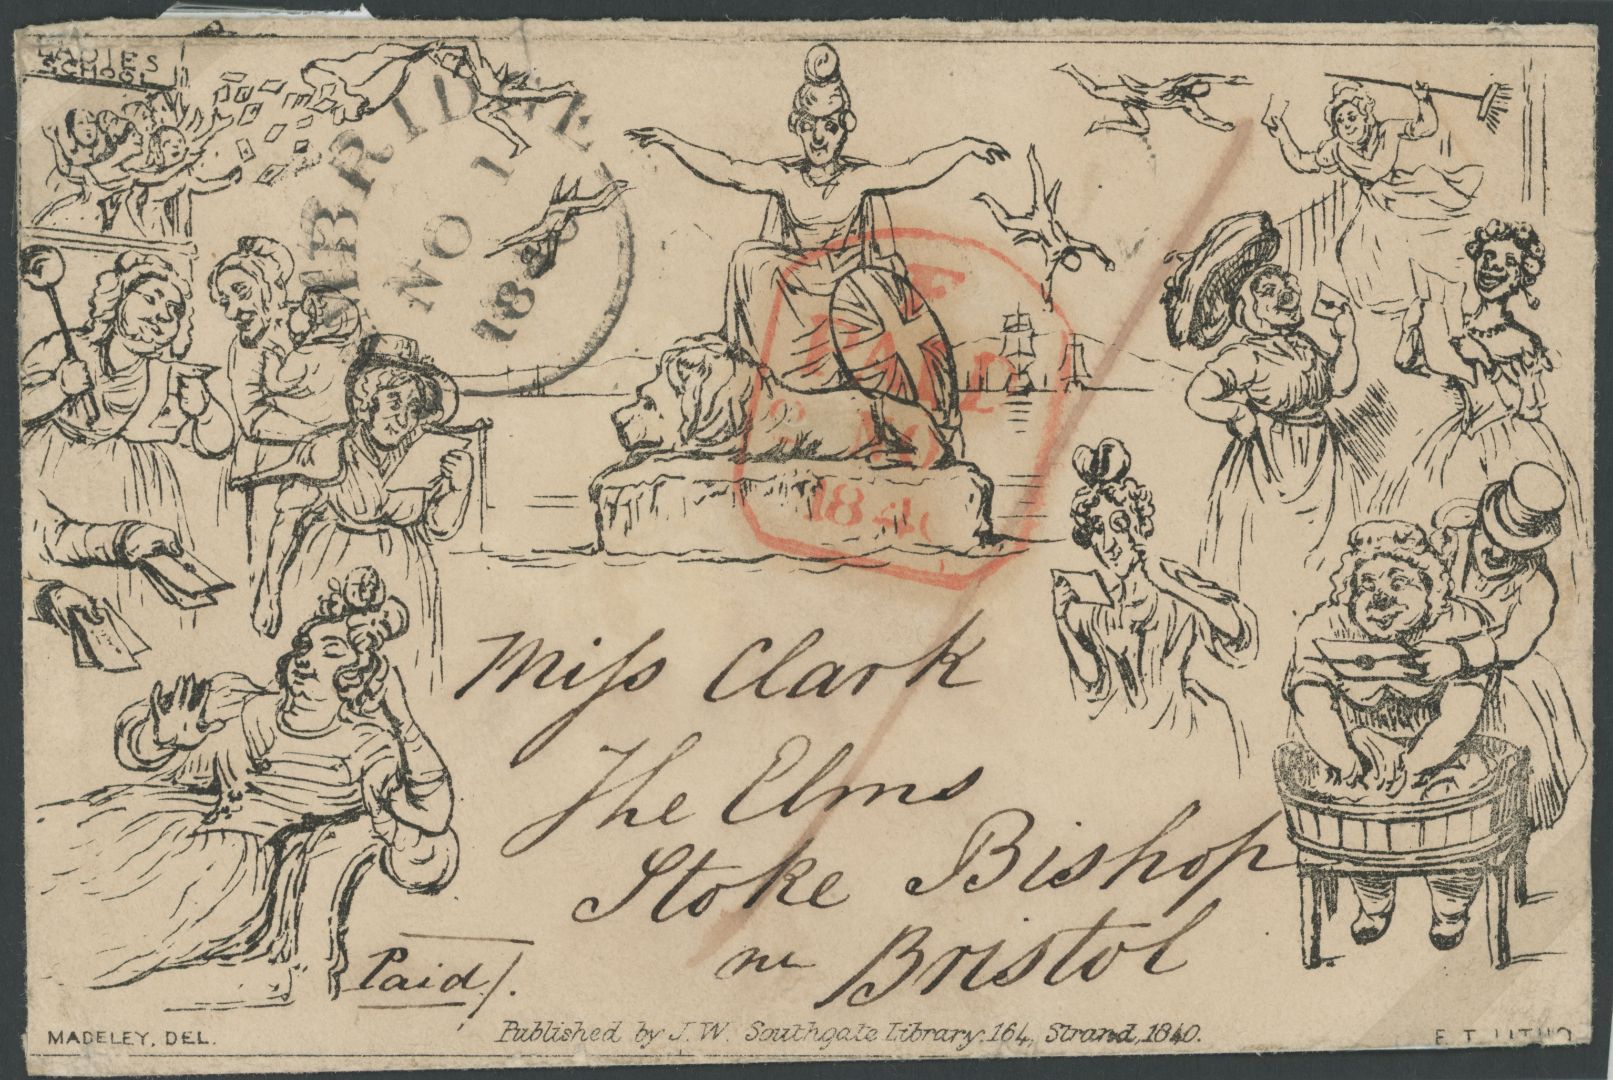 LADIES
SCHOOL
BRIDGE
NO 1
1840
PAID
2 NO
1840
Miss Clark
The Elms
Stoke Bishop
nr Bristol
Paid/.
MADELEY, DEL.
Published by J. W. Southgate Library. 164, Strand, 1840.